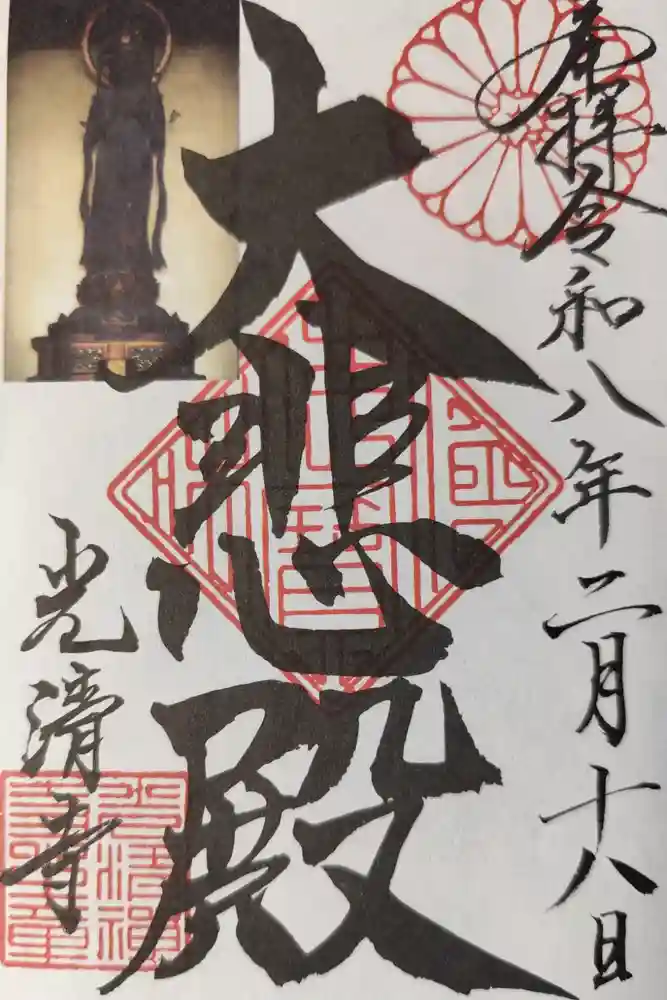 奉拝令和八年二月十八日
大悲殿
光清寺